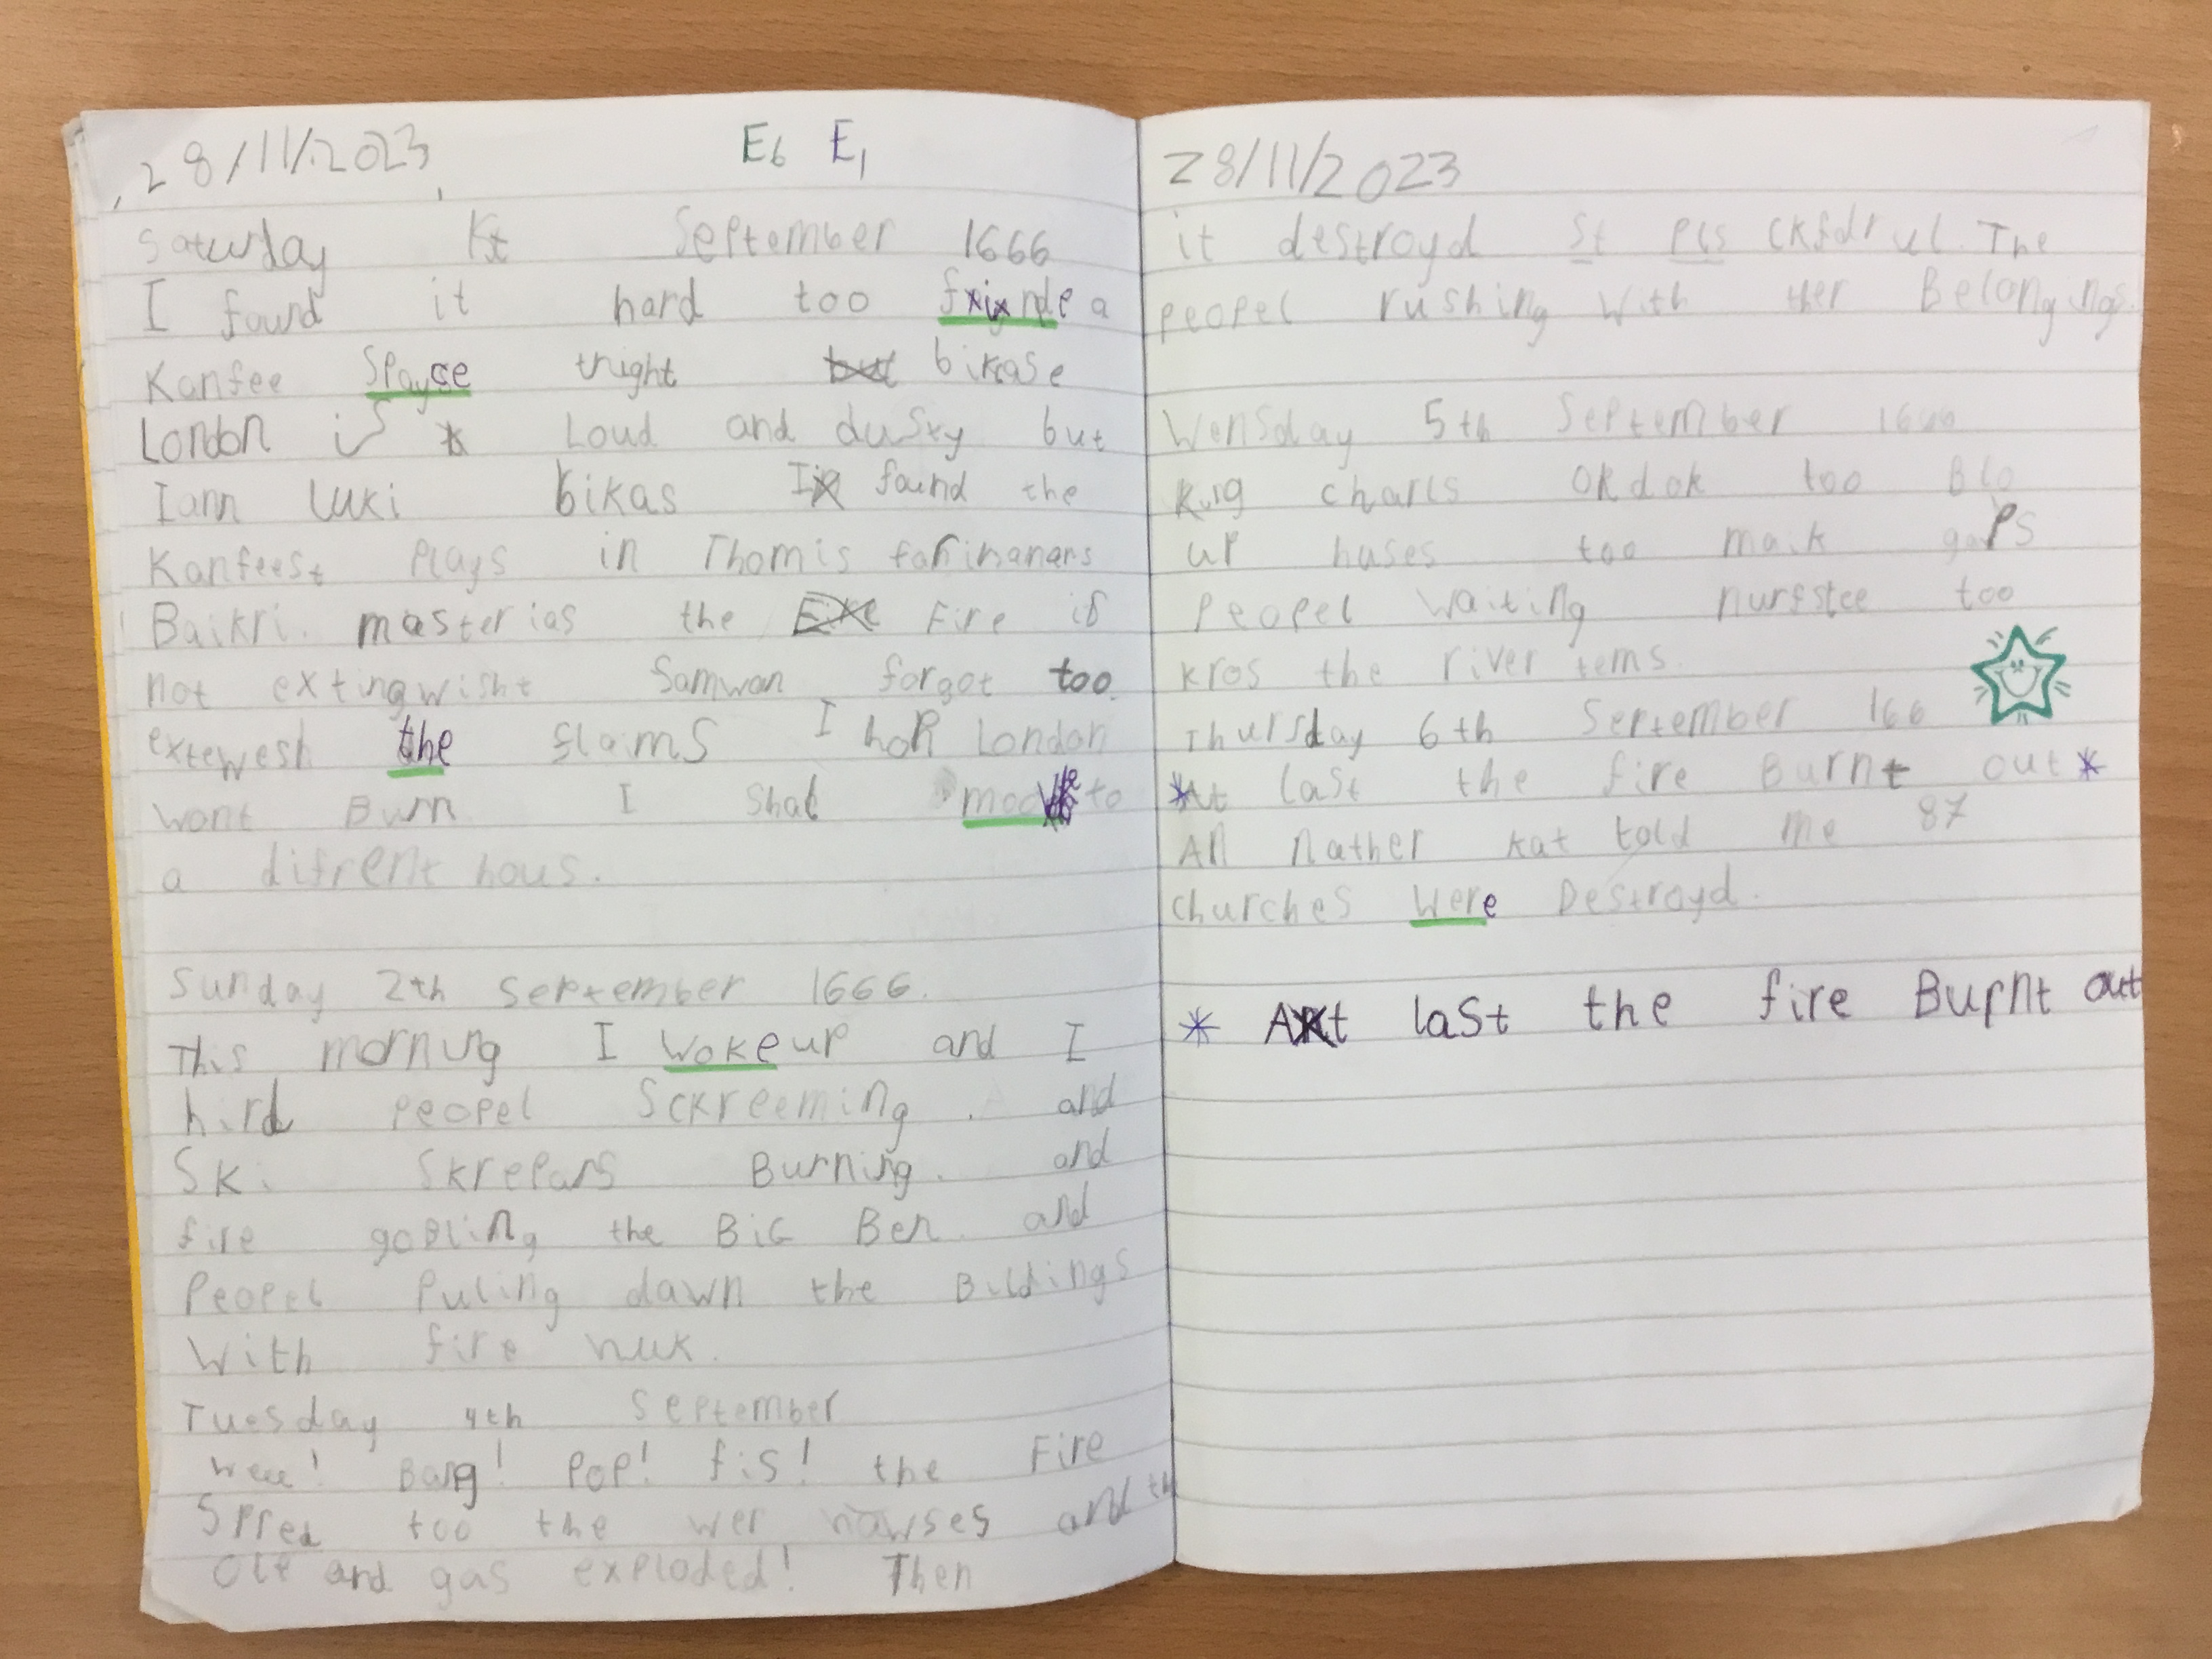 28/11/2023 E6 E1
Saturday September 1666
I found it hard too finde a
Kanfee Spayce tnight bikase
London is Loud and dusty but
I am luki bikas I found the
Kanfeest Plays in Thomis farinanars
Baikri. masterias the Fire is
not extingwisht Samwan forgot too
extewesh the flams I hop London
wont Burn I shal to
a difrent hous.
Sunday 2th September 1666.
This morning I woke up and I
hird peopel Sckreeming. and
Sk. Skrepars Burning. and
fire gobling the BiG Ben. and
Peopel Puling dawn the Bildings
With fire huk.
Tuesday 4th September
weee! Bang! Pop! fis! the Fire
Spred too the wer hawses and th
and gas exploded! Then
28/11/2023
it destroyd St Pls The
peopel rushing with ther Belongings.
Wensday 5th September
King charls too Blo
up huses too maik gaps
Peopel waiting too
kros the river tems.
Thursday 6th September 166
*At last the fire Burnt out*
An nather kat told me 87
churches Were Destroyd.
* At last the fire Burnt out